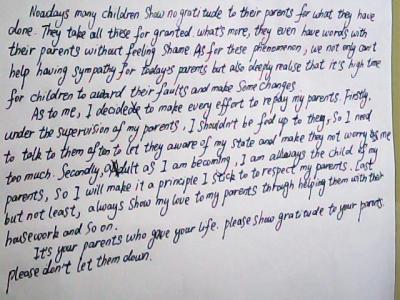 Noadays many children show no gratitude to their parents for what they have
done. They take all these for granted. what's more, they even have words with
their parents without feeling shame. As for these phenomenon, we not only can't
help having sympathy for today's parents but also deeply realise that it's high time
for children to award their faults and make some changes.
As to me, I decidede to make every effort to repay my parents. Firstly,
under the supervision of my parents, I shouldn't be fed up to they, so I need
to talk to them often to let they aware of my state and make they not worry about me
too much. Secondly, adult as I am becoming, I am allways the child of my
parents, so I will make it a principle I stick to to respect my parents. Last
but not least, always show my love to my parents through helping them with their
housework and so on.
It's your parents who gave your life. please show gratitude to your parents.
please don't let them down.